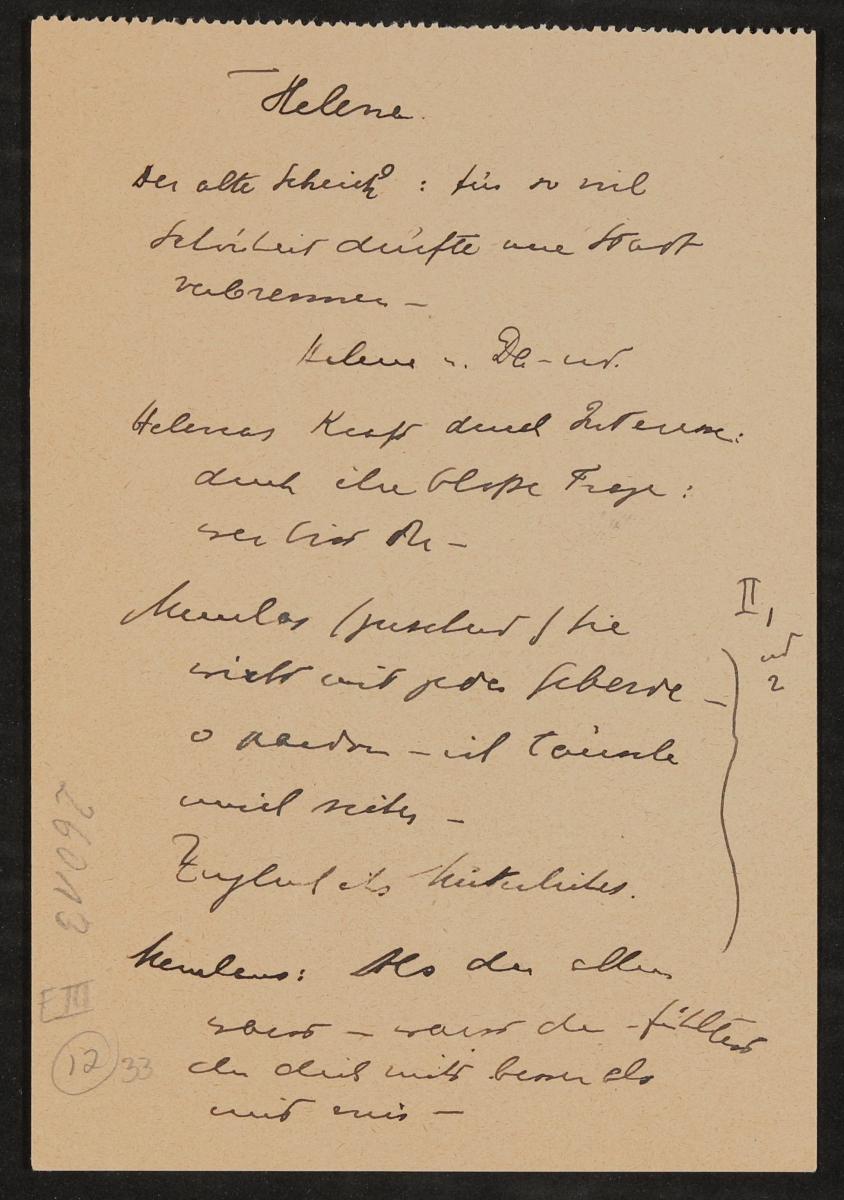 Helena.
Der alte Scheich: für so viel
Schönheit dürfte eine Stadt
verbrennen –
Helene u. Da-ud.
Helenas Kraft durch Interesse:
durch ihre blosse Frage:
wer bist du –
II, 1
und
2
Menelas ( ) Sie
wirkt mit jeder Geberde –
o pardon – ich täusche
mich selber –
Zugleich als
Menelaus: Als du allein
warst – warst du – fühltest
du dich nicht besser als
mit mir –
26013
E III
12 33